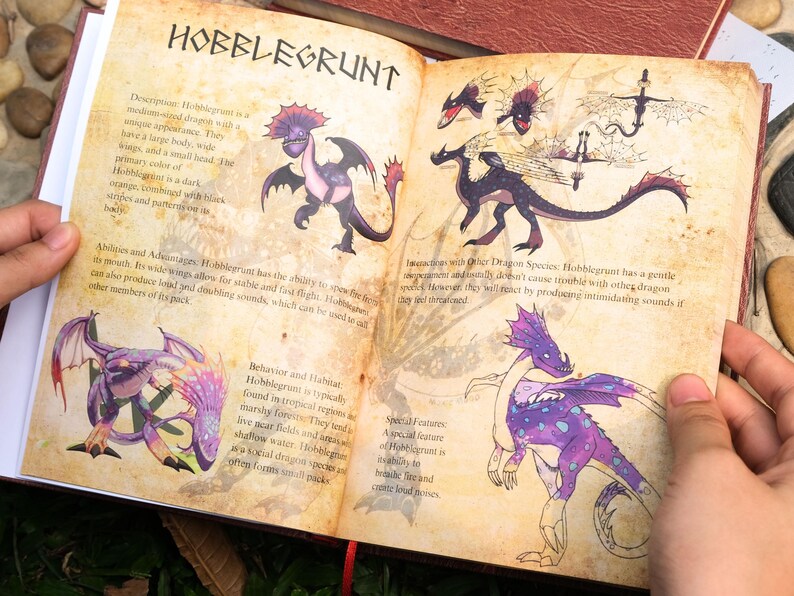 HOBBLEGRUNT
Description: Hobblegrunt is a
medium-sized dragon with a
unique appearance. They
have a large body, wide
wings, and a small head. The
primary color of
Hobblegrunt is a dark
orange, combined with black
stripes and patterns on its
body.
Abilities and Advantages: Hobblegrunt has the ability to spew fire from
its mouth. Its wide wings allow for stable and fast flight. Hobblegrunt
can also produce loud and doubling sounds, which can be used to call
other members of its pack.
Behavior and Habitat:
Hobblegrunt is typically
found in tropical regions and
marshy forests. They tend to
live near fields and areas with
shallow water. Hobblegrunt
is a social dragon species and
often forms small packs.
Interactions with Other Dragon Species: Hobblegrunt has a gentle
temperament and usually doesn't cause trouble with other dragon
species. However, they will react by producing intimidating sounds if
they feel threatened.
Special Features:
A special feature
of Hobblegrunt is
its ability to
breathe fire and
create loud noises.